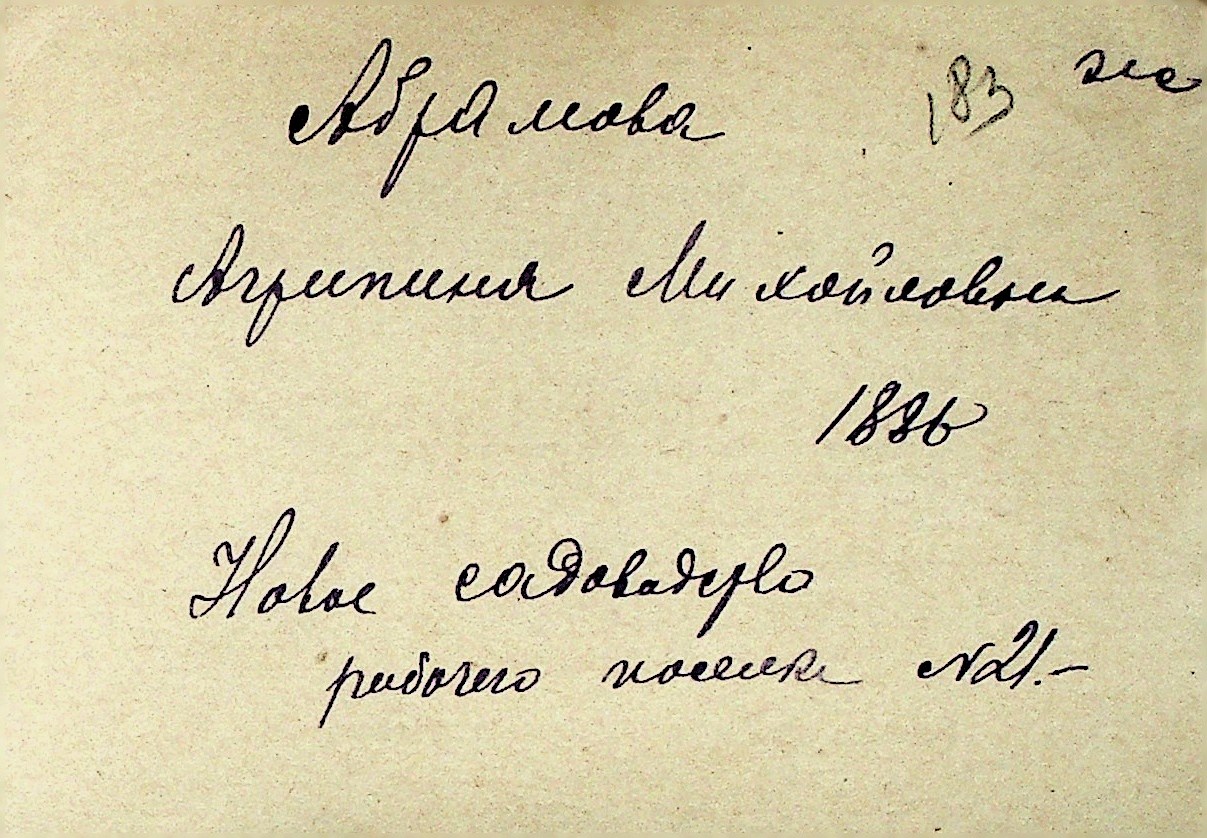 Абрамова 183 жс
Агрипиня Михайловна
1886
Новое садоводство
рабочего поселка №21.-